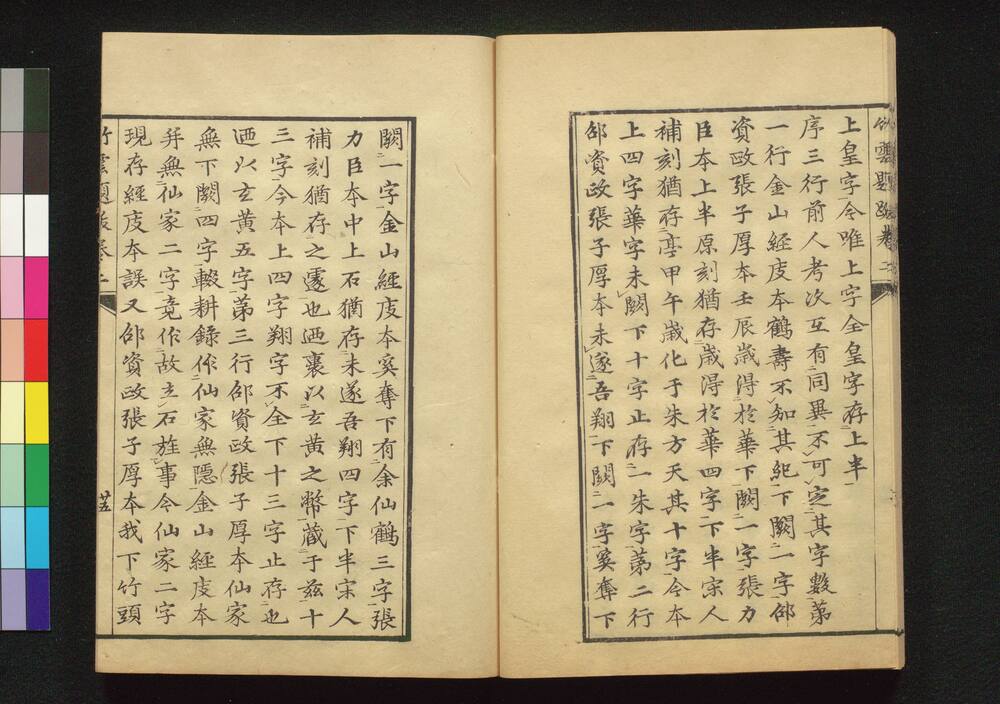 竹雲題跋卷二
上皇字今唯上字全皇字存上半
序三行前人考次互有同異不可定其字數第
一行金山經庋本鶴壽不知其紀下闕一字邵
資政張子厚本壬辰歲得於華下闕一字張力
臣本上半原刻猶存歲得於華四字下半宋人
補刻猶存亭甲午歲化于朱方天其十字今本
上四字華字未闕下十字止存一朱字第二行
邵資政張子厚本未遂吾翔下闕一字奚奪下
闕一字金山經庋本奚奪下有余仙鶴三字張
力臣本中上石猶存未遂吾翔四字下半宋人
補刻猶存之遽也迺裹以玄黃之幣藏于茲十
三字今本上四字翔字不全下十三字止存也
迺以玄黃五字第三行邵資政張子厚本仙家
無下闕四字輟耕錄作仙家無隱金山經庋本
并無仙家二字竟作故立石旌事今仙家二字
現存經庋本誤又邵資政張子厚本我下竹頭
竹雲題跋卷二